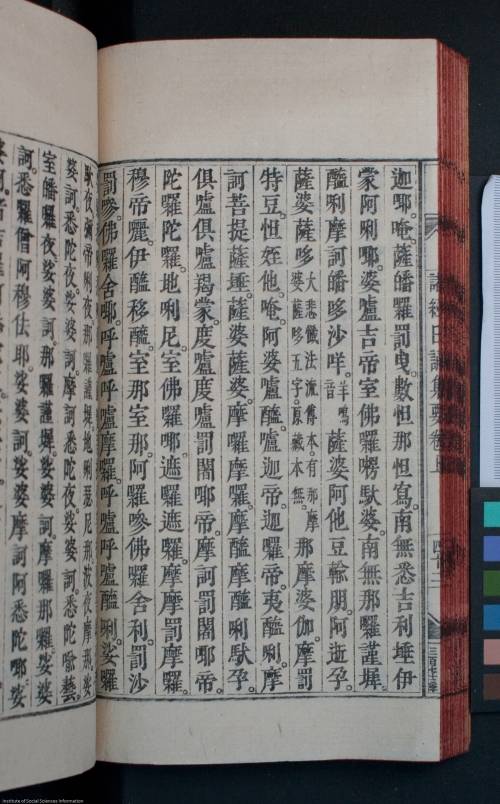 諸經日誦集要卷上 四十二
迦㖿。唵。薩皤囉罰曳。數怛那怛寫。南無悉吉利埵伊
蒙阿唎㖿。婆盧吉帝室佛囉楞馱婆。南無那囉謹墀。
醯唎摩訶皤哆沙咩。羊鳴音 薩婆阿他豆輸朋。阿逝孕。
薩婆薩哆 大悲懺法流傳本。有那摩婆薩哆五字。原藏本無。 那摩婆伽。摩罰
特豆。怛姪他。唵。阿婆盧醯。盧迦帝。迦囉帝。夷醯唎。摩
訶菩提薩埵。薩婆薩婆。摩囉摩囉。摩醯摩醯唎馱孕。
俱盧俱盧羯蒙。度盧度盧罰闍㖿帝。摩訶罰闍㖿帝。
陀囉陀囉。地唎尼。室佛囉㖿。遮囉遮囉。摩摩罰摩囉。
穆帝麗。伊醯移醯。室那室那。阿囉嘇佛囉舍利。罰沙
罰嘇。佛囉舍㖿。呼嚧呼嚧摩囉。呼嚧呼嚧醯唎。娑囉
馱夜。彌帝唎夜。那囉謹墀。地唎瑟尼那。波夜摩那。娑
婆訶。悉陀夜。娑婆訶。摩訶悉陀夜。娑婆訶。悉陀喻藝。
室皤囉夜。娑婆訶。那囉謹墀。娑婆訶。摩囉那囉。娑婆
訶。悉囉僧阿穆佉㖿。娑婆訶。娑婆摩訶阿悉陀㖿。娑
Institute of Social Sciences Information